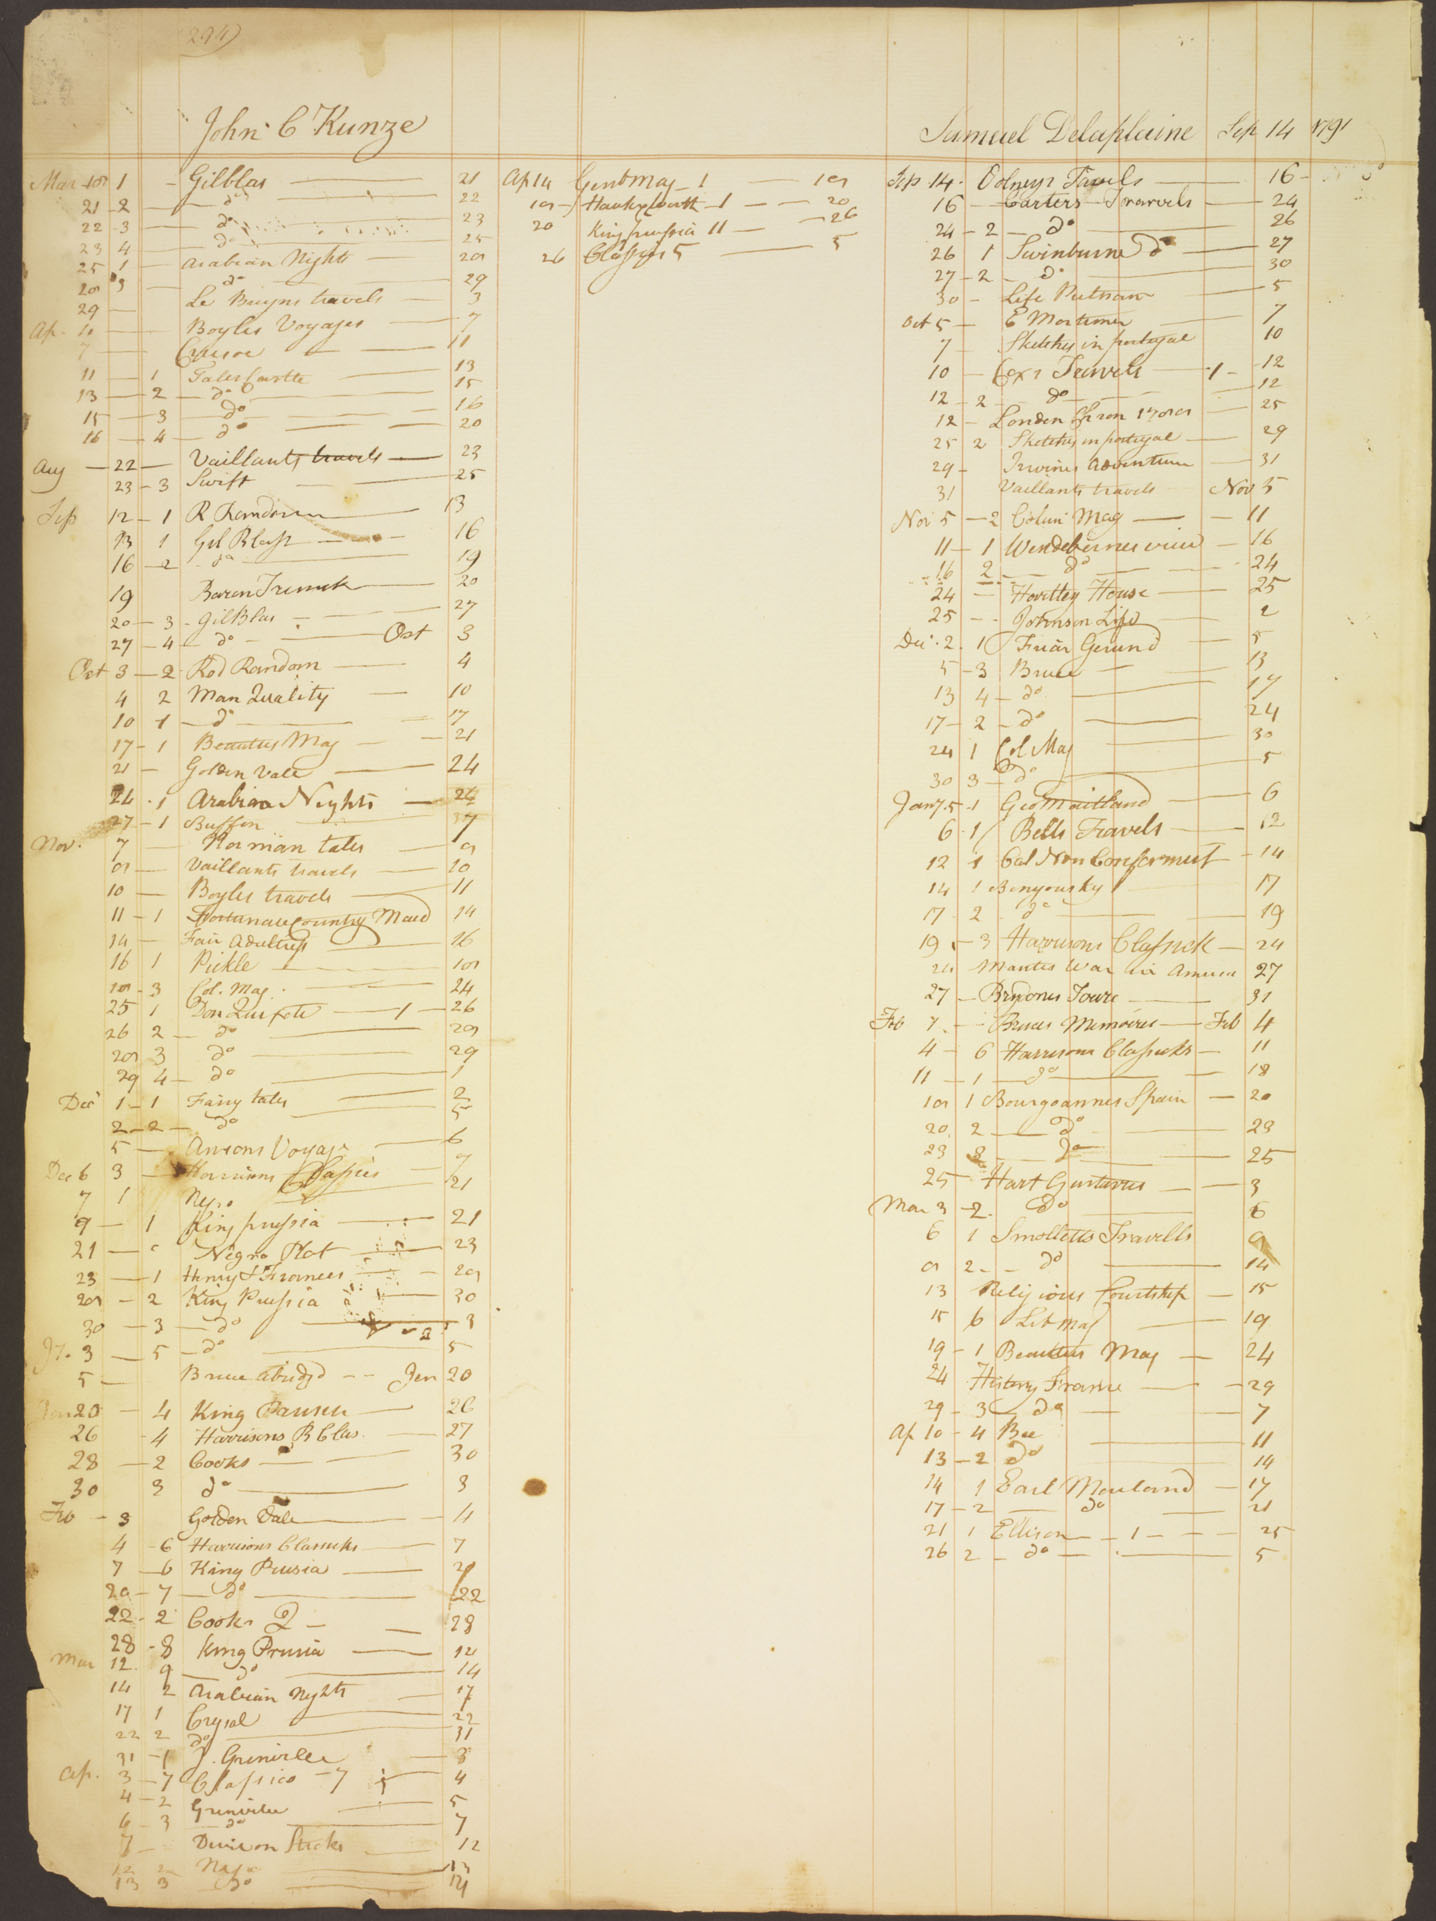 294)
John C Kunze
Mar 18 1 Gilblas 21
21 2 do 22
22 3 do 23
23 4 do 25
25 1 Arabian Nights 28
28 3 do 29
29 Le Bruyns travels 3
Ap. Boyles Voyages 7
7 Crusoe 11
11 1 Tales Castle 13
13 2 do 15
15 3 do 16
16 4 do 20
Aug 22 Vaillants travels 23
23 3 Swift 25
Sep 12 1 R Random 13
13 1 Gil Blass 16
16 2 do 19
19 Baron Trenck 20
20 3 Gil Blas 27
27 4 do Oct 3
Oct 3 2 Rod Random 4
4 2 Man Quality 10
10 1 do 17
17 1 Beauties Mag 21
21 Golden Vale 24
24 1 Arabian Nights
27 1 Buffon 7
Nov. 7 Norman tales 8
8 Vaillants travels 10
10 Boyles travels 11
11 1 Fortunate Country Maid 14
14 Fair Adultress 16
16 1 Pickle 18
18 3 Col. Mag. 24
25 1 Don Quixote 1 26
26 2 do 28
28 3 do 29
29 4 do 1
Dec 1 1 Fairy tales 2
2 2 do 5
5 Ansons Voyage 6
Dec 6 3 Harrisons Classics 7
7 1 Negro 21
9 1 King prussia 21
21 Negro Plot 23
23 1 Henry & Frances 28
28 2 King Prussia 30
30 3 do 3
3 5 do 5
5 Bruce abridgd Jan 20
Jan 20 4 King Prussia 26
26 4 Harrisons B Clas. 27
28 2 Cooks 30
30 3 do 3
Feb 3 Golden Vale 4
4 6 Harrisons Classicks 7
7 6 King Prusia
20 7 do 22
22 2 Cooks 2 28
28 8 King Prusia 12
Mar 12 9 do 14
14 2 Arabian Nights 17
17 1 Crysal 22
22 2 do 31
31 1 J. Grenville 3
Ap. 3 7 Classics 7 4
4 2 Grenville 5
6 3 do 7
7 12
12 2 13
13 3 do 14
Ap 14 Gent Mag 1 18
18 Hawkesworth 1 20
20 King prussia 11 26
26 Classics 5 5
Samuel Delaplaine Sep 14 1791
Sep 14 Volneys Travels 16
16 Carters Travels 24
24 2 do 26
26 1 Swinburne do 27
27 2 do 30
30 Life Putnam 5
Oct 5 E Mortimer 7
7 Sketches in portugal 10
10 Coxs Travels 1 12
12 2 do 12
12 London Chron 1788 25
25 2 Sketches in portugal 29
29 Irwines Adventures 31
31 Vaillants travels Nov 5
Nov 5 2 Colum Mag 11
11 1 Wendebornes view 16
16 2 do 24
24 Hartley House 25
25 Johnson Life 2
Dec. 2 1 Friar Gerund 5
5 3 Bruce 13
13 4 do 17
17 2 do 24
24 1 Col Mag 30
30 3 do 5
Jany. 5 1 Geo Maitland 6
6 1 Bells Travels 12
12 1 Cal Non Conformist 14
14 1 Benyousky 17
17 2 do 19
19 3 Harrisons Classick 24
24 Mantes War in America 27
27 Brydones Toure 31
Feb Bruces Memoires Feb 4
4 6 Harrisons Classicks 11
11 1 do 18
18 1 Bourgoannes Spain 20
20 2 do 23
23 3 do 25
25 Hart Gustavus 3
Mar 3 2 do 6
6 1 Smolletts Travells
8 2 do 14
13 Religious Courtship 15
15 6 Lit Mag 19
19 1 Beauties Mag 24
24 History France 29
29 3 do 7
Ap 10 4 Bee 11
13 2 do 14
14 1 Earl Moreland 17
17 2 do 21
21 1 Ellison 1 25
26 2 do 5